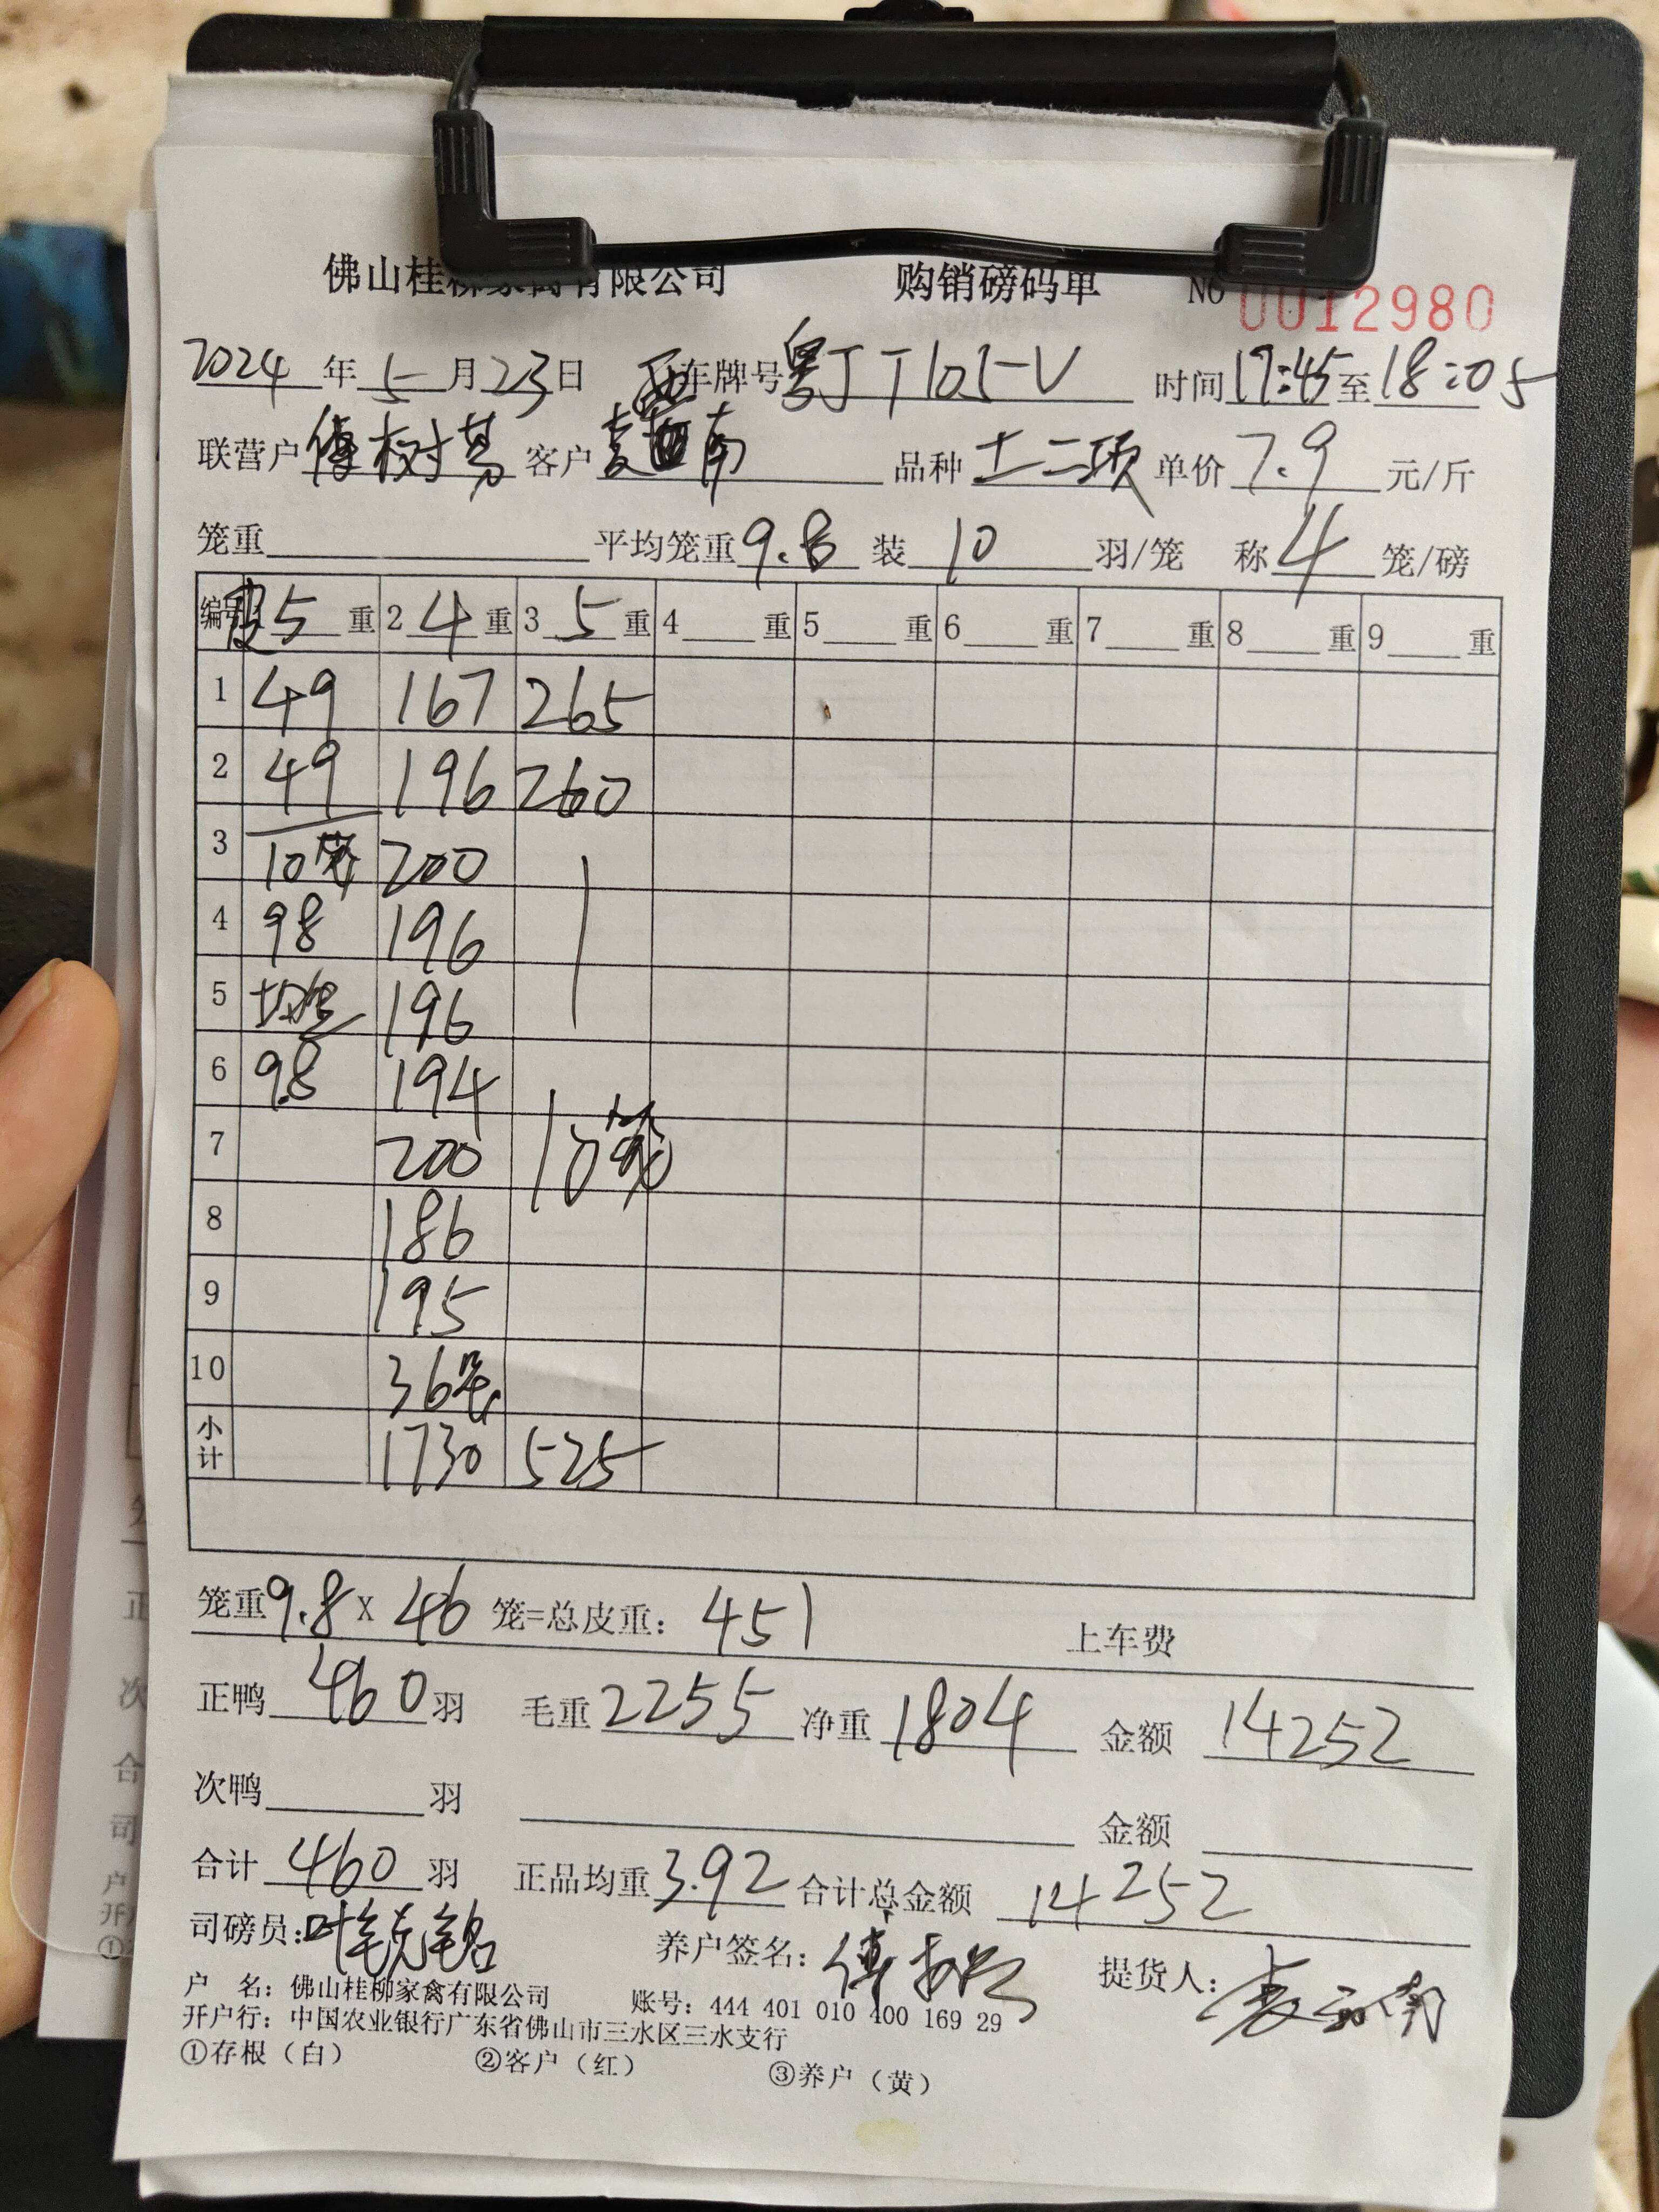 佛山桂柳家禽有限公司 购销磅码单 NO 0012980
2024年5月23日 西 车牌号粤JT105V 时间17:45至18:05
联营户 傅树 客户 南 品种 土二项 单价7.9元/斤
笼重 平均笼重9.8 装10羽/笼 称4笼/磅
编号 皮5重 2 4重 3 5重 4 重 5 重 6 重 7 重 8 重 9 重
1 49 167 265
2 49 196 260
3 10笼 200
4 98 196
5 均 196
6 9.8 194
7 200 10笼
8 186
9 195
10 36笼
小计 1730 525
笼重9.8X46笼=总皮重：451 上车费
正鸭460羽 毛重2255 净重1804 金额 14252
次鸭 羽 金额
合计460羽 正品均重3.92 合计总金额 14252
司磅员：叶锐铭 养户签名：傅 提货人： 南
户 名：佛山桂柳家禽有限公司 账号：444 401 010 400 169 29
开户行：中国农业银行广东省佛山市三水区三水支行
①存根（白） ②客户（红） ③养户（黄）